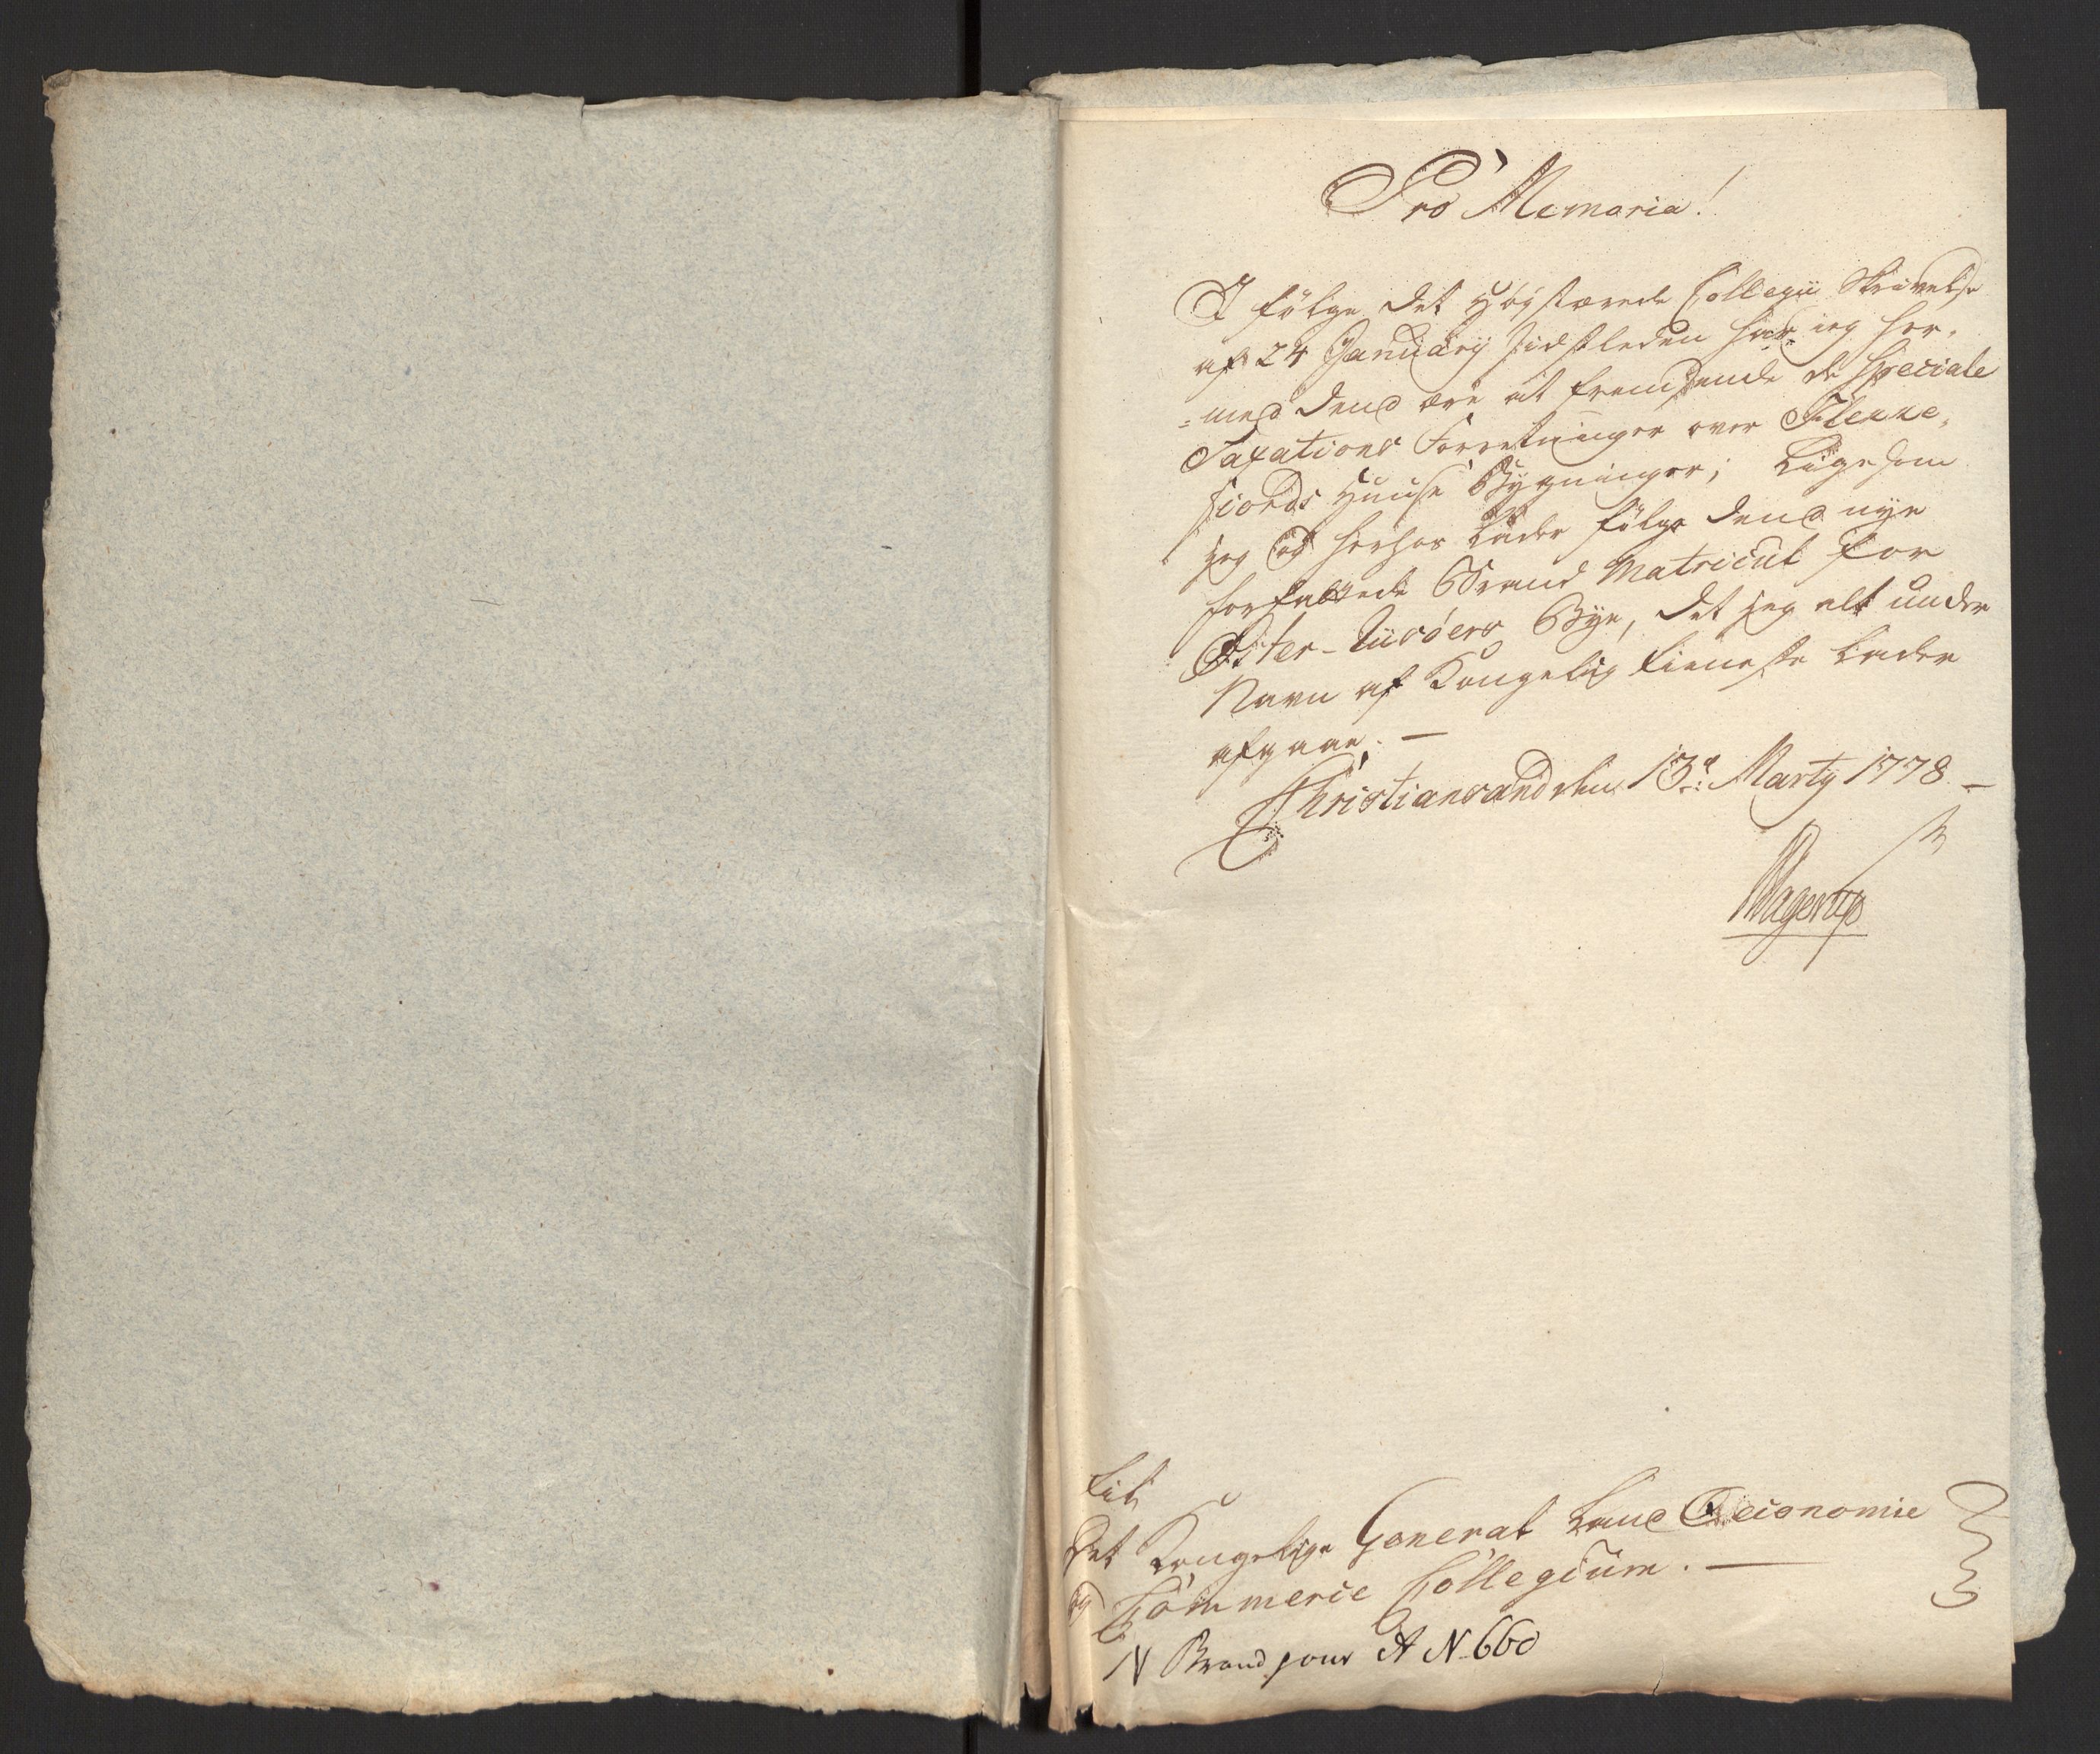 Pro Memoria!
I følge det Højstærede Collegii Skrivelse
af 24 January sidstleden har ieg her-
=med dend ære at fremsende de speciale
Taxations Forretninger over Flekke-
fiords Huuse Bygninger; Ligesom
jeg og herhos lader følge dend nye
forfattede Brand Matricul for
Øster-Riisøers Bye, det jeg alt under
Navn af Kongelig tieneste lader
afgaae. —
Christiansand den 13de Marty 1778 —
Hagerup
Til
Det Kongelige General Land Oeconomie
og Commerce Collegium. —
N Brand jour A No 660